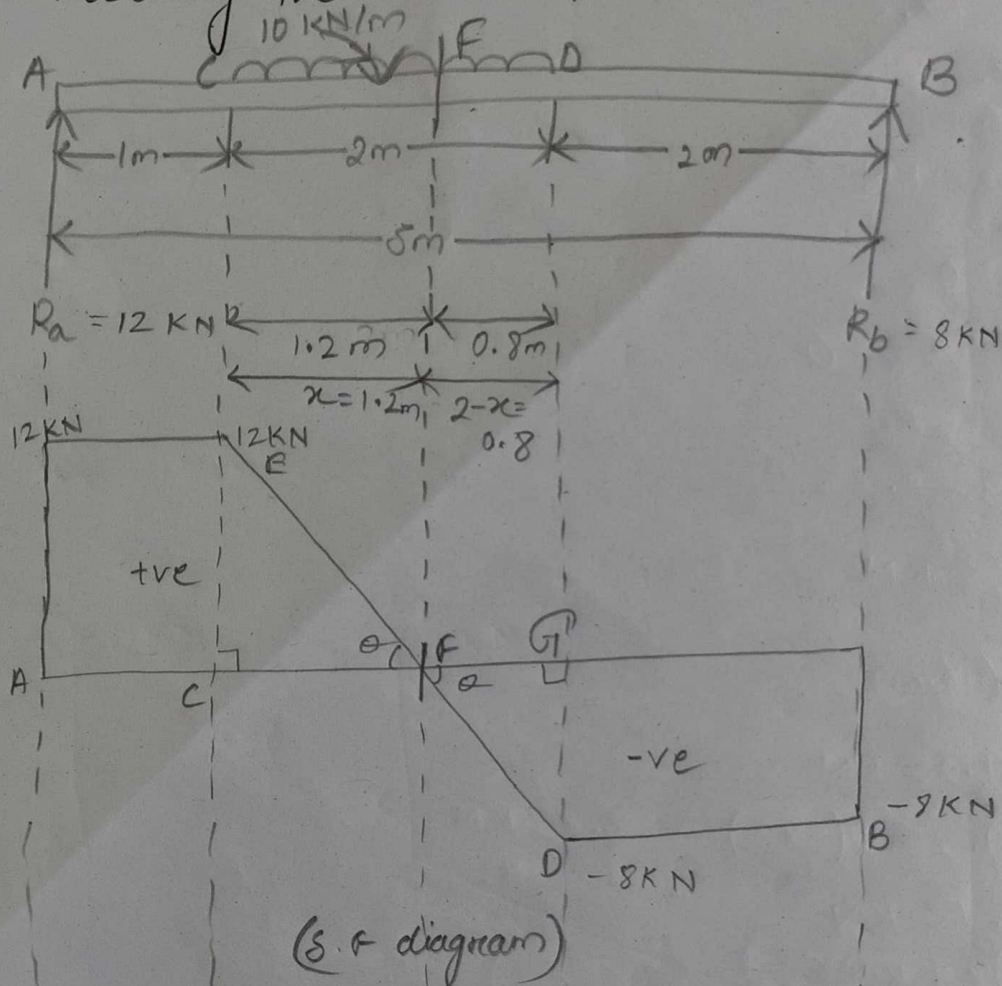 10 KN/m
A C F D B
1m 2m 2m
5m
Ra = 12 KN Rb = 8 KN
1.2 m 0.8m
x=1.2m 2-x=
0.8
12KN 12KN
E
+ve
θ F G
A C θ
-ve
-8KN
B
D -8KN
(S.F diagram)